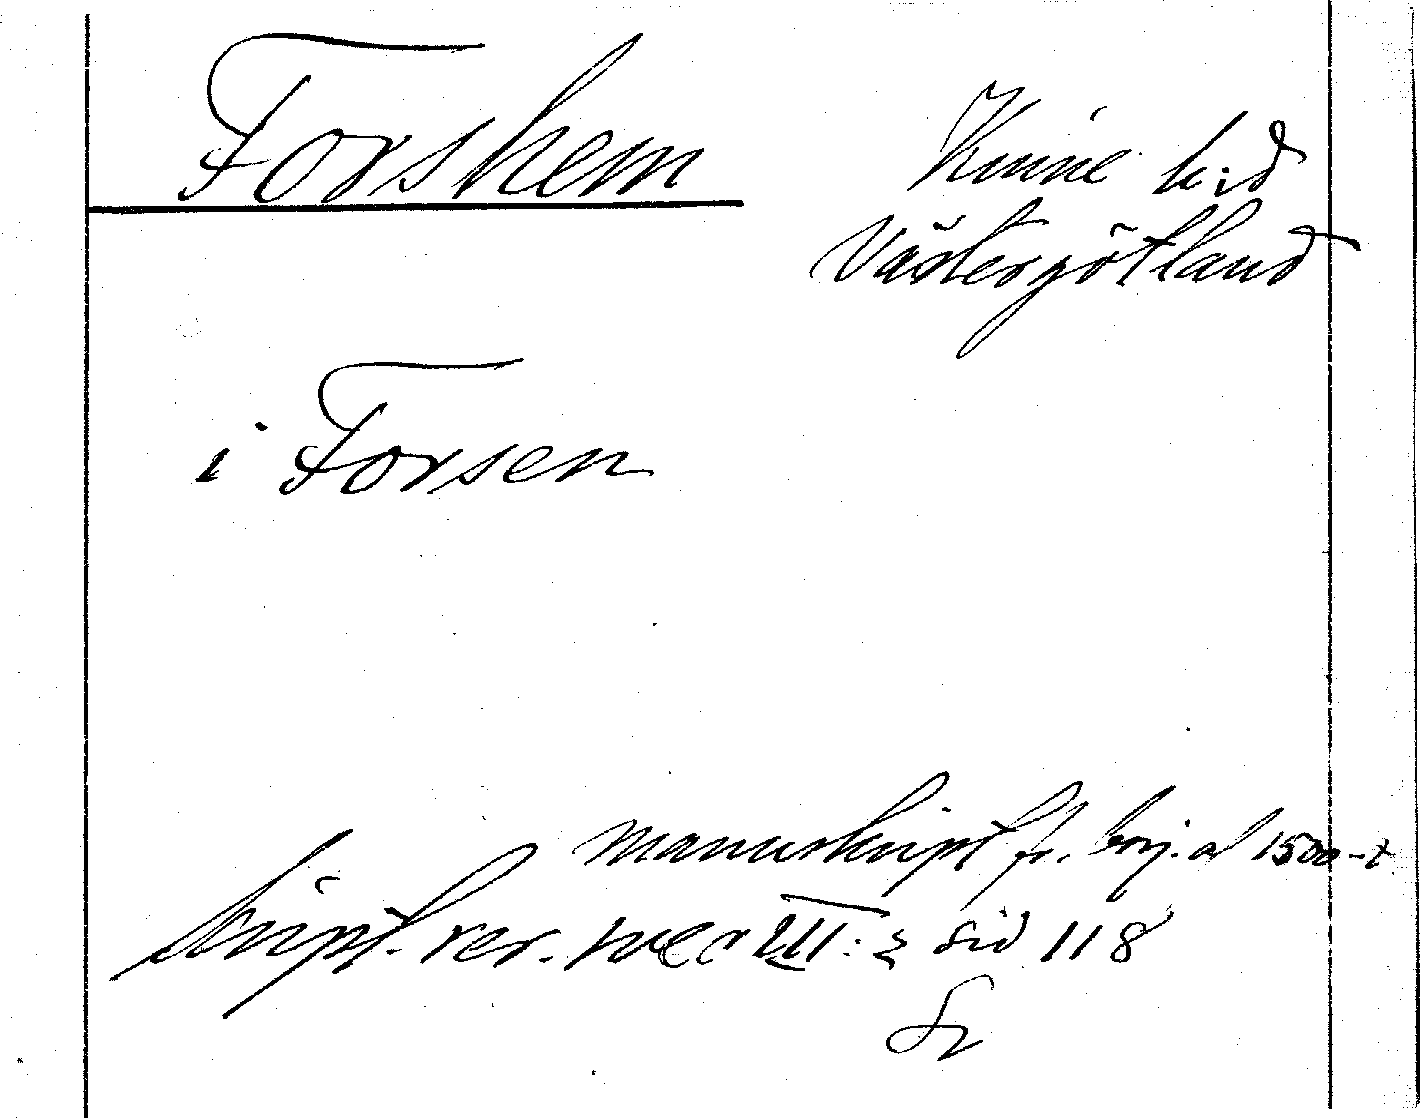 Forshem
Kinne h:d
Västergötland
i Forsen
manuskript fr. börj. af 1500-t
Script. rer. svec III: 2 sid 118